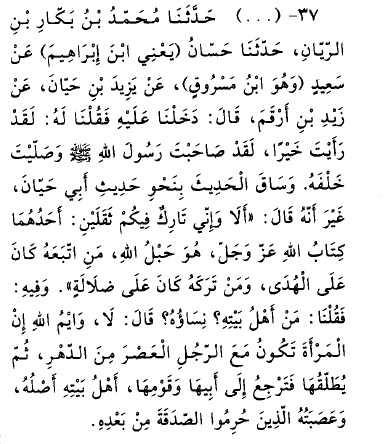 ٣٧- (...) حَدَّثَنَا مُحَمَّدُ بْنُ بَكَّارِ بْنِ
الرَّيَّانِ، حَدَّثَنَا حَسَّانُ (يَعْنِي ابْنَ إِبْرَاهِيمَ) عَنْ
سَعِيدٍ (وَهُوَ ابْنُ مَسْرُوقٍ)، عَنْ يَزِيدَ بْنِ حَيَّانَ، عَنْ
زَيْدِ بْنِ أَرْقَمَ، قَالَ: دَخَلْنَا عَلَيْهِ فَقُلْنَا لَهُ: لَقَدْ
رَأَيْتَ خَيْرًا، لَقَدْ صَاحَبْتَ رَسُولَ اللهِ ﷺ وَصَلَّيْتَ
خَلْفَهُ. وَسَاقَ الْحَدِيثَ بِنَحْوِ حَدِيثِ أَبِي حَيَّانَ،
غَيْرَ أَنَّهُ قَالَ: «أَلَا وَإِنِّي تَارِكٌ فِيكُمْ ثَقَلَيْنِ: أَحَدُهُمَا
كِتَابُ اللهِ عَزَّ وَجَلَّ، هُوَ حَبْلُ اللهِ، مَنِ اتَّبَعَهُ كَانَ
عَلَى الْهُدَى، وَمَنْ تَرَكَهُ كَانَ عَلَى ضَلَالَةٍ». وَفِيهِ:
فَقُلْنَا: مَنْ أَهْلُ بَيْتِهِ؟ نِسَاؤُهُ؟ قَالَ: لَا، وَايْمُ اللهِ إِنَّ
الْمَرْأَةَ تَكُونُ مَعَ الرَّجُلِ الْعَصْرَ مِنَ الدَّهْرِ، ثُمَّ
يُطَلِّقُهَا فَتَرْجِعُ إِلَى أَبِيهَا وَقَوْمِهَا، أَهْلُ بَيْتِهِ أَصْلُهُ،
وَعَصَبَتُهُ الَّذِينَ حُرِمُوا الصَّدَقَةَ مِنْ بَعْدِهِ.